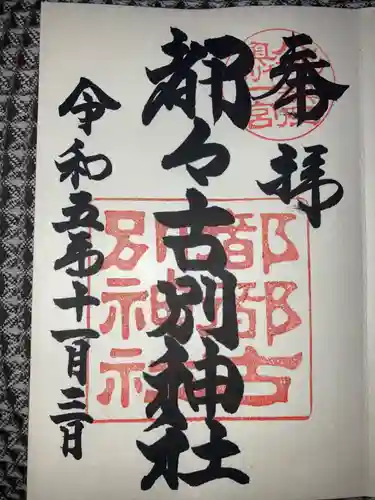 奉拝
都々古別神社
令和五年十一月三日
都都古
別神社